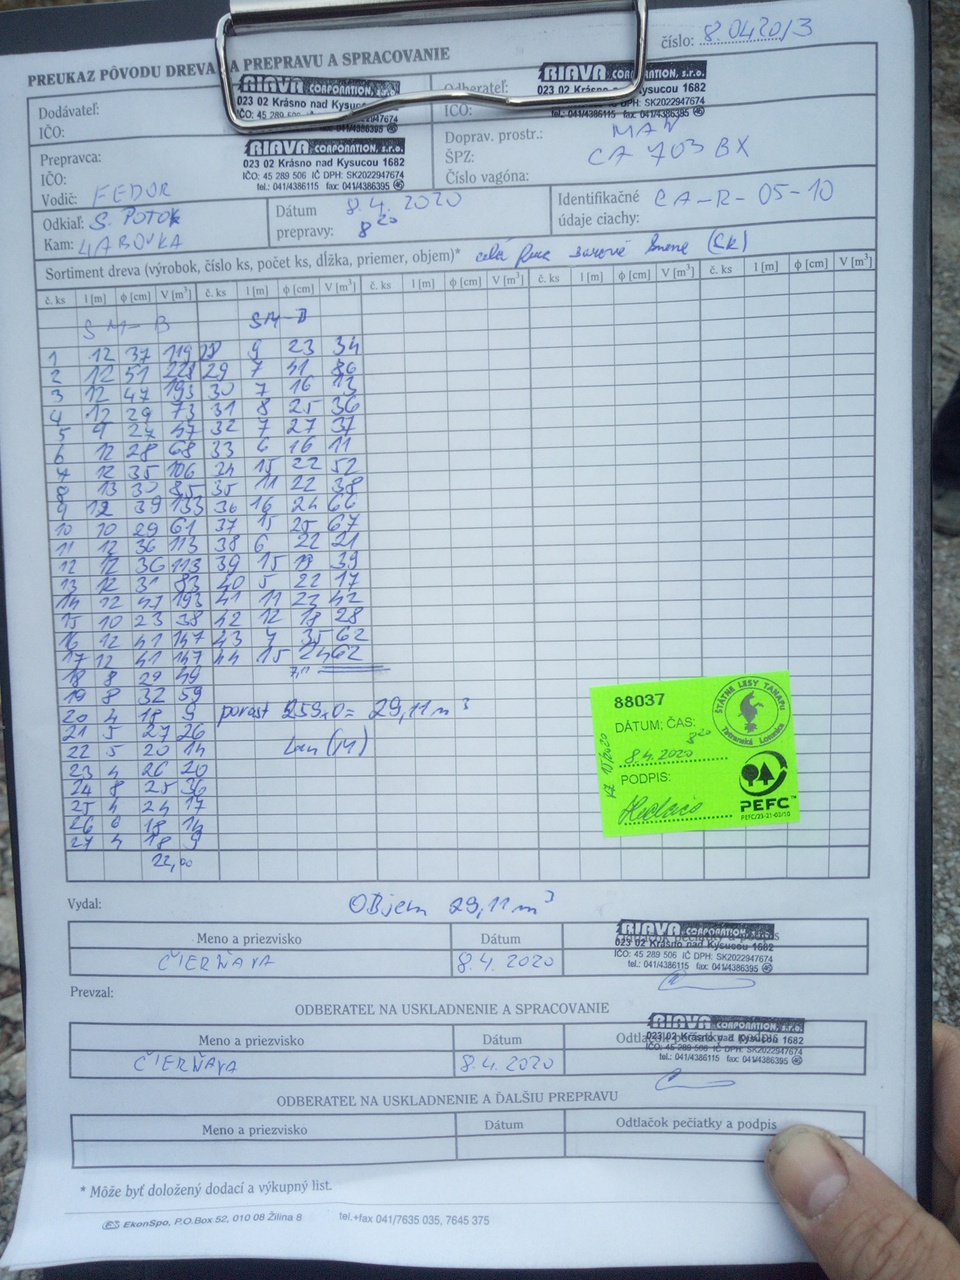 číslo: 8.042013
PREUKAZ PÔVODU DREVA NA PREPRAVU A SPRACOVANIE
Dodávateľ:
IČO:
RIAVA CORPORATION, s.r.o.
023 02 Krásno nad Kysucou 1682
Odberateľ:
IČO:
RIAVA CORPORATION, s.r.o.
023 02 Krásno nad Kysucou 1682
IČO: 45 289 506 IČ DPH: SK2022947674
tel.: 041/4386115 fax: 041/4386395
Prepravca:
IČO:
Vodič: FEDOR
RIAVA CORPORATION, s.r.o.
023 02 Krásno nad Kysucou 1682
IČO: 45 289 506 IČ DPH: SK2022947674
tel.: 041/4386115 fax: 041/4386395
Doprav. prostr.: MAN
ŠPZ: CA 703 BX
Číslo vagóna:
Odkiaľ: S. POTOK
Kam: ĽABOVKA
Dátum 8.4. 2020
prepravy: 8 20
Identifikačné CA-R-05-10
údaje ciachy:
Sortiment dreva (výrobok, číslo ks, počet ks, dĺžka, priemer, objem)*
č. ks l [m] ϕ [cm] V [m³] č. ks l [m] ϕ [cm] V [m³] č. ks l [m] ϕ [cm] V [m³] č. ks l [m] ϕ [cm] V [m³] č. ks l [m] ϕ [cm] V [m³]
SM-B SM-B
1 12 37 119 28 9 23 34
2 12 51 221 29 7 41 86
3 12 47 193 30 7 16 13
4 12 29 73 31 8 25 36
5 9 27 47 32 7 27 37
6 12 28 68 33 6 16 11
7 12 35 106 34 15 22 52
8 13 30 85 35 11 22 38
9 12 39 133 36 16 24 66
10 10 29 61 37 15 25 67
11 12 36 113 38 6 22 21
12 12 36 113 39 15 19 39
13 12 31 83 40 5 22 17
14 12 47 193 41 11 23 42
15 10 23 38 42 12 18 28
16 12 41 147 43 7 35 62
17 12 41 147 44 15 24 62
18 8 29 49 7,11
19 8 32 59
20 4 18 9 porast 259x0 = 29,11 m³
21 5 27 26
22 5 20 14
23 4 26 20
24 8 25 36
25 4 24 17
26 18 14
27 4 18 9
22,00
88037
DÁTUM; ČAS:
8.4.2020 8 20
PODPIS:
ŠTÁTNE LESY TANAPU
Tatranská Lomnica
PEFC™
PEFC/23-21-03/10
Vydal: OBjem 29,11 m³
Meno a priezvisko Dátum Odtlačok pečiatky a podpis
ČIERŇAVA 8.4. 2020
RIAVA CORPORATION, s.r.o.
023 02 Krásno nad Kysucou 1682
IČO: 45 289 506 IČ DPH: SK2022947674
tel.: 041/4386115 fax: 041/4386395
Prevzal:
ODBERATEĽ NA USKLADNENIE A SPRACOVANIE
Meno a priezvisko Dátum Odtlačok pečiatky a podpis
ČIERŇAVA 8.4. 2020
RIAVA CORPORATION, s.r.o.
023 02 Krásno nad Kysucou 1682
IČO: 45 289 506 IČ DPH: SK2022947674
tel.: 041/4386115 fax: 041/4386395
ODBERATEĽ NA USKLADNENIE A ĎALŠIU PREPRAVU
Meno a priezvisko Dátum Odtlačok pečiatky a podpis
* Môže byť doložený dodací a výkupný list.
EkonSpo, P.O.Box 52, 010 08 Žilina 8 tel.+fax 041/7635 035, 7645 375